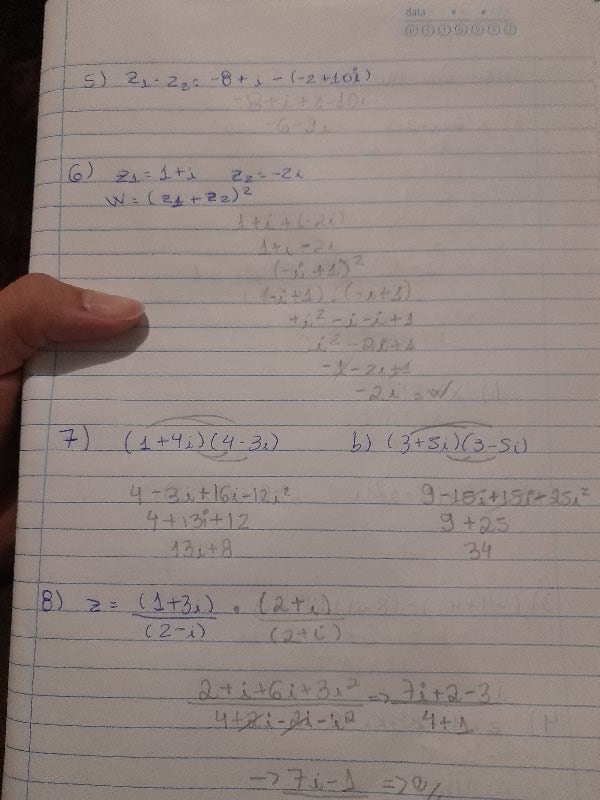 data
5) z₁ - z₂ = -8 + i - (-2 + 10i)
-8 + i + 2 - 10i
-6 - 9i
6) z₁ = 1 + i z₂ = -2i
W = (z₁ + z₂)²
1 + i + (-2i)
1 + i - 2i
(-i + 1)²
(-i + 1) . (-i + 1)
+i² - i - i + 1
i² - 2i + 1
-1 - 2i + 1
-2i = w
7) (1 + 4i)(4 - 3i) b) (3 + 5i)(3 - 5i)
4 - 3i + 16i - 12i² 9 - 15i + 15i + 25i²
4 + 13i + 12 9 + 25
13i + 8 34
8) z = (1 + 3i)/(2 - i) . (2 + i)/(2 + i)
2 + i + 6i + 3i²/4 + 2i - 2i - i² => 7i + 2 - 3/4 + 1
-> 7i - 1 =>